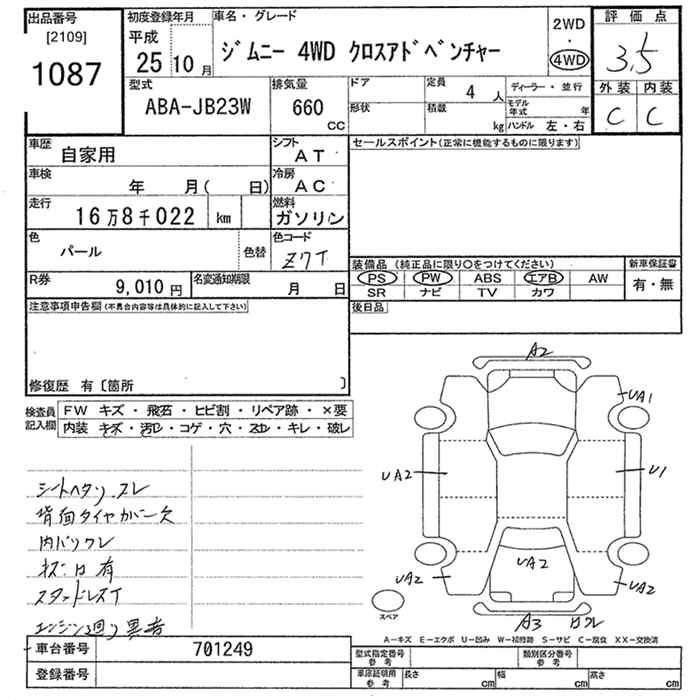 出品番号
[2109]
1087
初度登録年月
平成
25 10 月
車名・グレード
ジムニー 4WD クロスアドベンチャー
2WD
・
4WD
評価点
3.5
外装 内装
C C
型式
ABA-JB23W
排気量
660
CC
ドア
形状
定員
4 人
積載
kg
ディーラー・並行
モデル年式 年
ハンドル 左・右
車歴
自家用
シフト
AT
車検
年 月( 日)
冷房
AC
走行
16万8千022 km
燃料
ガソリン
色
パール
色替
色コード
Z7T
R券
9,010 円
名変通知期限
月 日
セールスポイント(正常に機能するものに限ります)
装備品 (純正品に限り○をつけてください)
PS PW ABS エアB AW
SR ナビ TV カワ
新車保証書
有・無
後日品
注意事項申告欄(不具合内容等は具体的に記入して下さい)
修復歴 有〔箇所 〕
検査員記入欄
FW キズ・飛石・ヒビ割・リペア跡・×要
内装 キズ・汚レ・コゲ・穴・スレ・キレ・破レ
シートヘタリ スレ
背面タイヤカバー欠
内バリワレ
ネジ口有
スタッドレスT
エンジン廻り異音
A2
UA1
UA2
U1
UA2
UA2
UA2
A3 ワレ
スペア
A-キズ E-エクボ U-凹み W-補修跡 S-サビ C-腐食 XX-交換済
車台番号
701249
登録番号
型式指定番号
参考
類別区分番号
参考
車庫証明用
参考
長さ cm
幅 cm
高さ cm